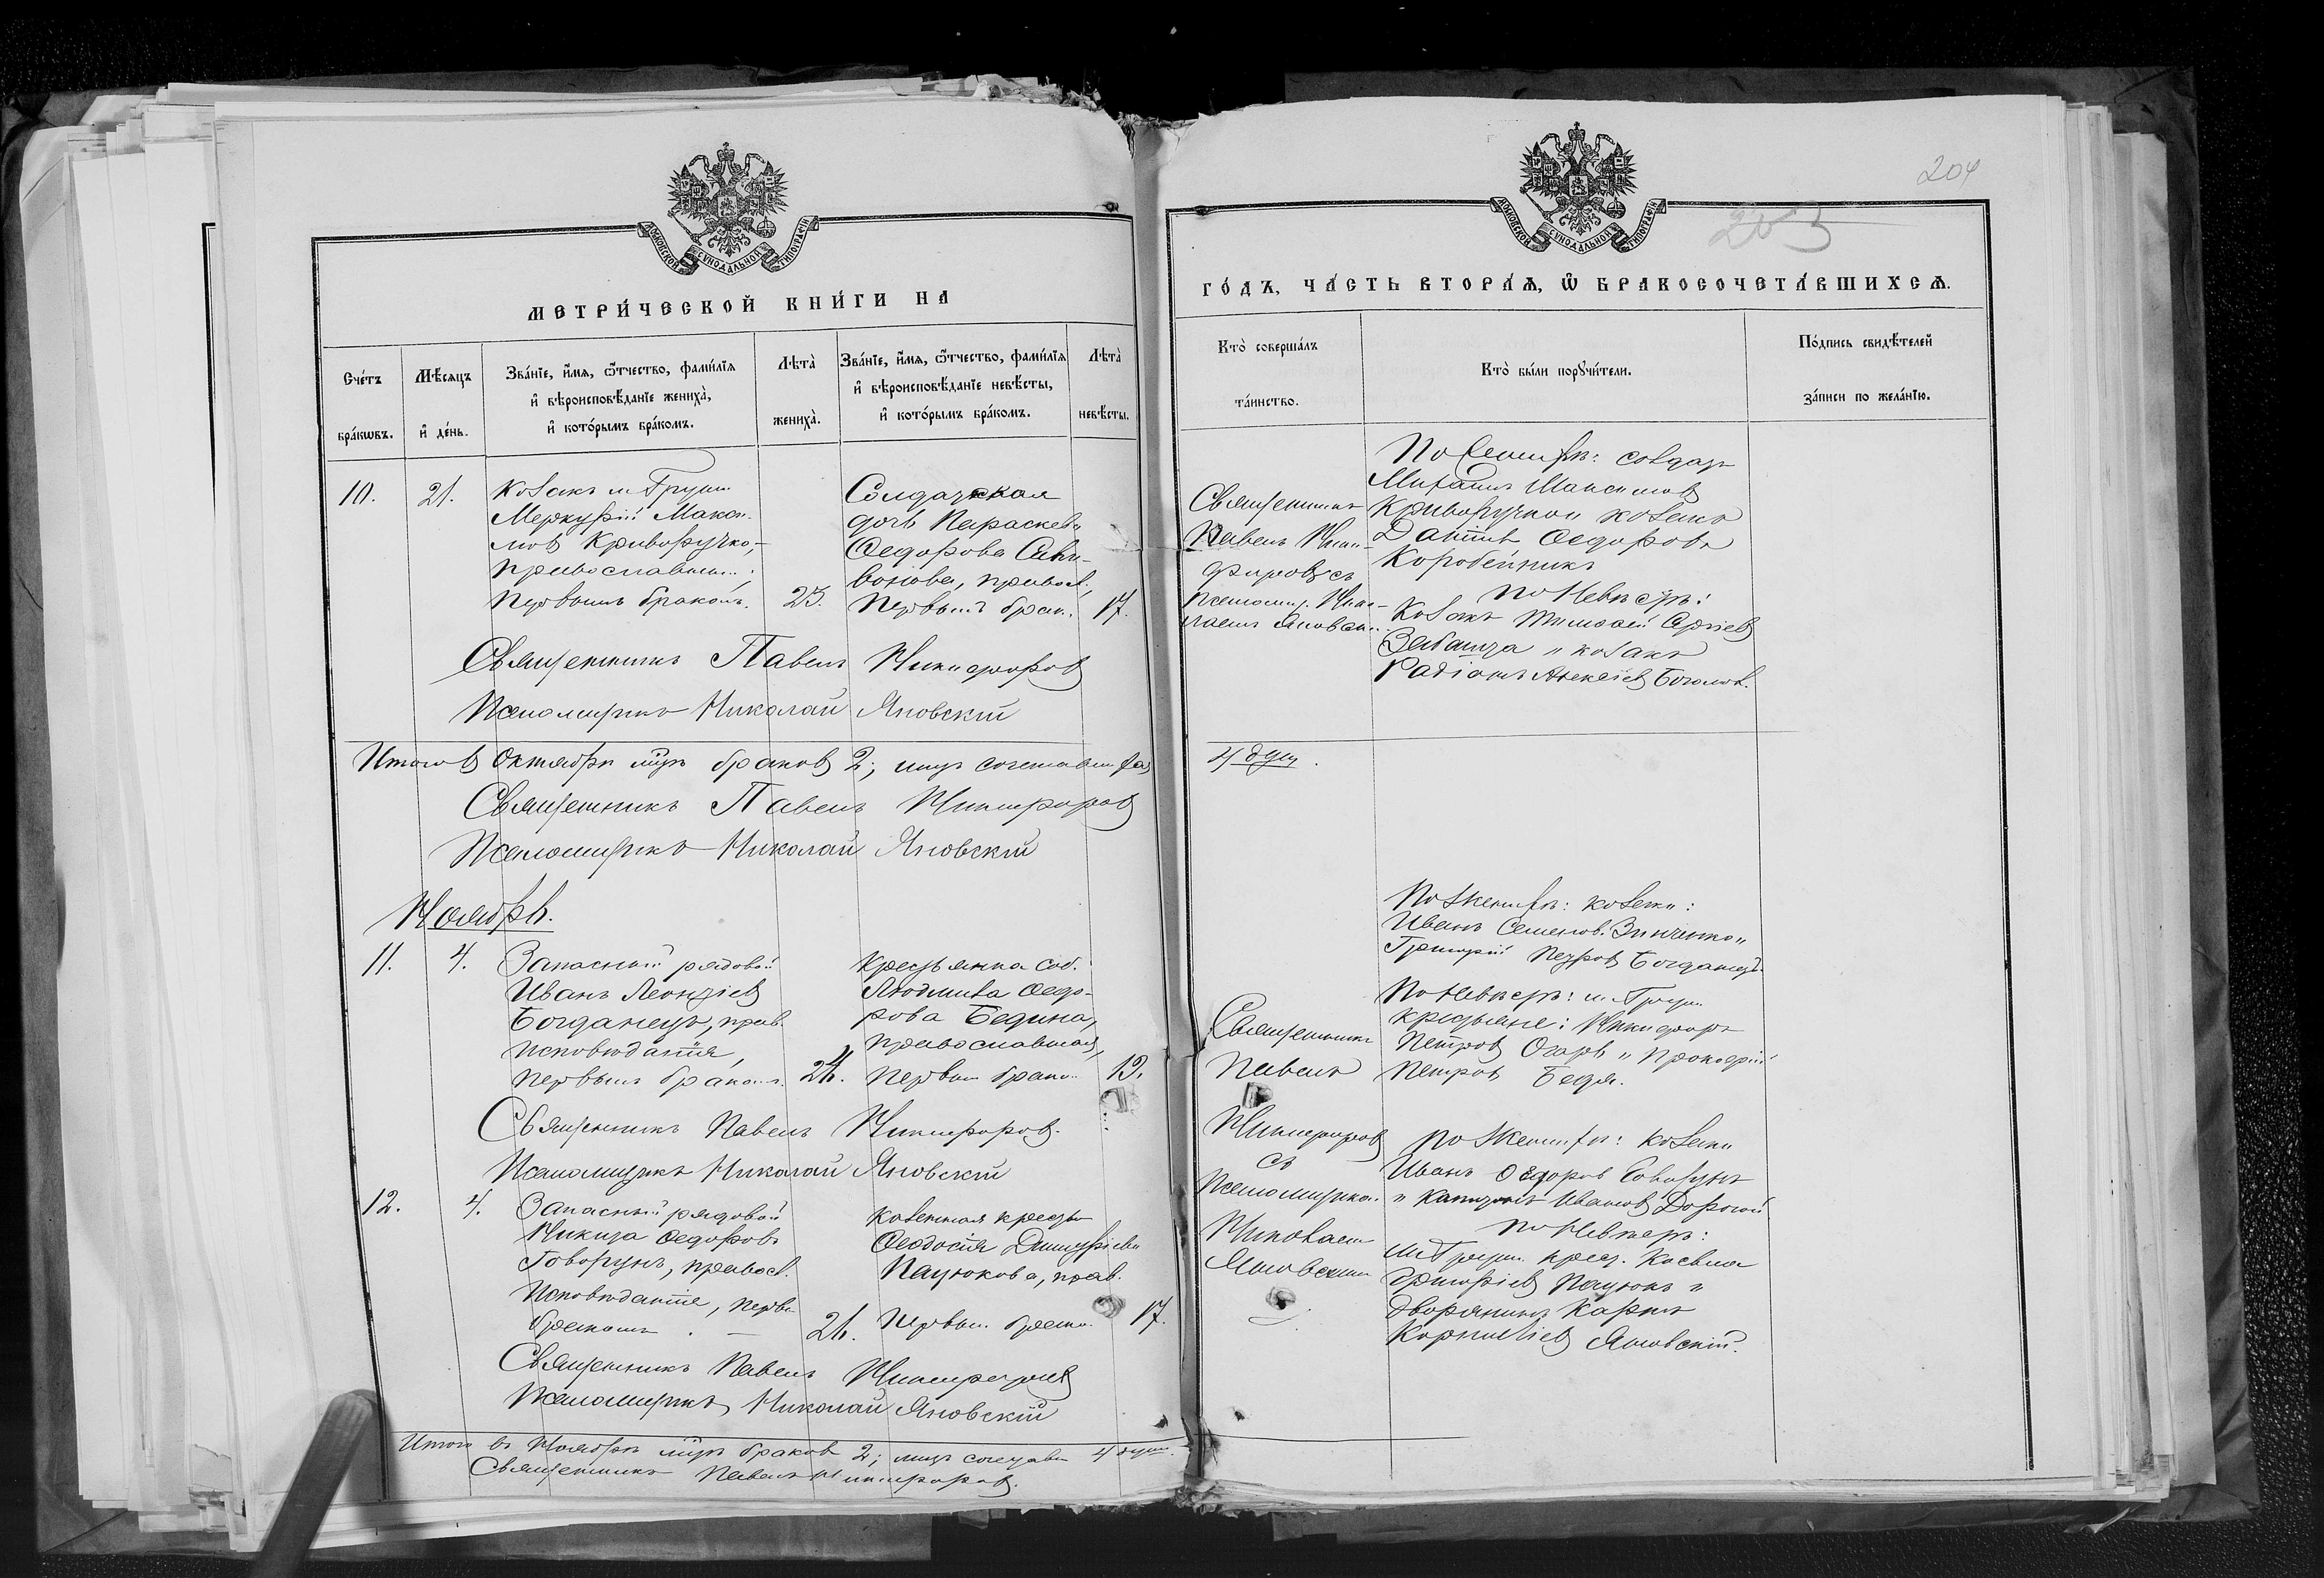 МОСКОВСКОЙ СѴНОДАЛЬНОЙ ТИПОГРАФІИ
МЕТРИ́ЧЕСКОЙ КНИ́ГИ НА
Сче́тъ бра́кѡвъ.
Мѣ́сяцъ и҆ де́нь.
Зва́нїе, и҆́мѧ, ѻ҆́тчество, фами́лїѧ
и҆ вѣроисповѣ́данїе жениха̀,
и҆ кото́рымъ бра́комъ.
Лѣта̀ жениха̀.
Зва́нїе, и҆́мѧ, ѻ҆́тчество, фами́лїѧ
и҆ вѣроисповѣ́данїе невѣ́сты,
и҆ кото́рымъ бра́комъ.
Лѣта̀ невѣ́сты.
10. 21.
Козакъ м. Груш.
Меркурій Макси-
мовъ Криворучко,
православный;
первымъ бракомъ. 25.
Солдатская
дочь Параскева
Федорова
правос.,
первымъ брак. 17.
Священникъ Павелъ Никифоровъ
Псаломщикъ Николай Яновскій
Итого въ Октябрѣ м-цѣ браковъ 2; лицъ сочетавшихся
Священникъ Павелъ Никифоровъ
Псаломщикъ Николай Яновскій
Ноябрь.
11. 4.
Запасный рядовой
Иванъ Леонтіевъ
Богданецъ, прав.
исповѣданія,
первымъ бракомъ. 24.
Крестьянка соб.
Людмила Федо-
рова Бедина,
православная,
первым брако 19.
Священникъ Павелъ Никифоровъ.
Псаломщикъ Николай Яновскій
12. 4.
Запасный рядовой
Никита Федоровъ
Говорунъ, правосл.
исповѣданія, перв.
бракомъ 26.
Казенная крест.
Феодосія Димитріева
Пацюкова, прав.
первым брако. 17.
Священникъ Павелъ Никифоровъ
Псаломщикъ Николай Яновскій
Итого въ Ноябрѣ м-цѣ браковъ 2; лицъ сочетав 4 душ.
Священникъ Павелъ Никифоровъ.
204
203
МОСКОВСКОЙ СѴНОДАЛЬНОЙ ТИПОГРАФІИ
ГО́ДЪ, ЧА́СТЬ ВТОРА́Ѧ, Ѿ БРАКОСОЧЕТА́ВШИХСѦ.
Кто̀ соверша́лъ та́инство.
Кто̀ бы́ли порꙋчи́тели.
По́дпись свидѣ́телей за́писи по жела́нїю.
Священникъ
Павелъ Ники-
форовъ съ
псаломщ. Нико-
лаемъ Яновским.
По женихѣ: солдатъ
Михаилъ Максимовъ
Криворучко и козакъ
Даніилъ Федоровъ
Коробейникъ
По невѣстѣ:
Козакъ Тимофей
Забашта и козакъ
Радіонъ Алексіевъ
4 душ.
По женихѣ: козаки:
Иванъ Семеновъ Зинченко и
Григорій Петровъ Богданецъ.
По невѣстѣ: м. Груш.
крестьяне: Никифоръ
Петровъ Огарь и Прокофій
Петровъ Бедя.
Священникъ
Павелъ
Никифоровъ
съ
Псаломщико.
Николаем
Яновским
По женихѣ: козаки
Иванъ Федоровъ Говорунъ
и Капитонъ Ивановъ Дорогой
По невѣстѣ:
м. Груш. крест. Косьма
Григоріевъ Пацюкъ и
дворянинъ Карпъ
Корниліевъ Яновскій.